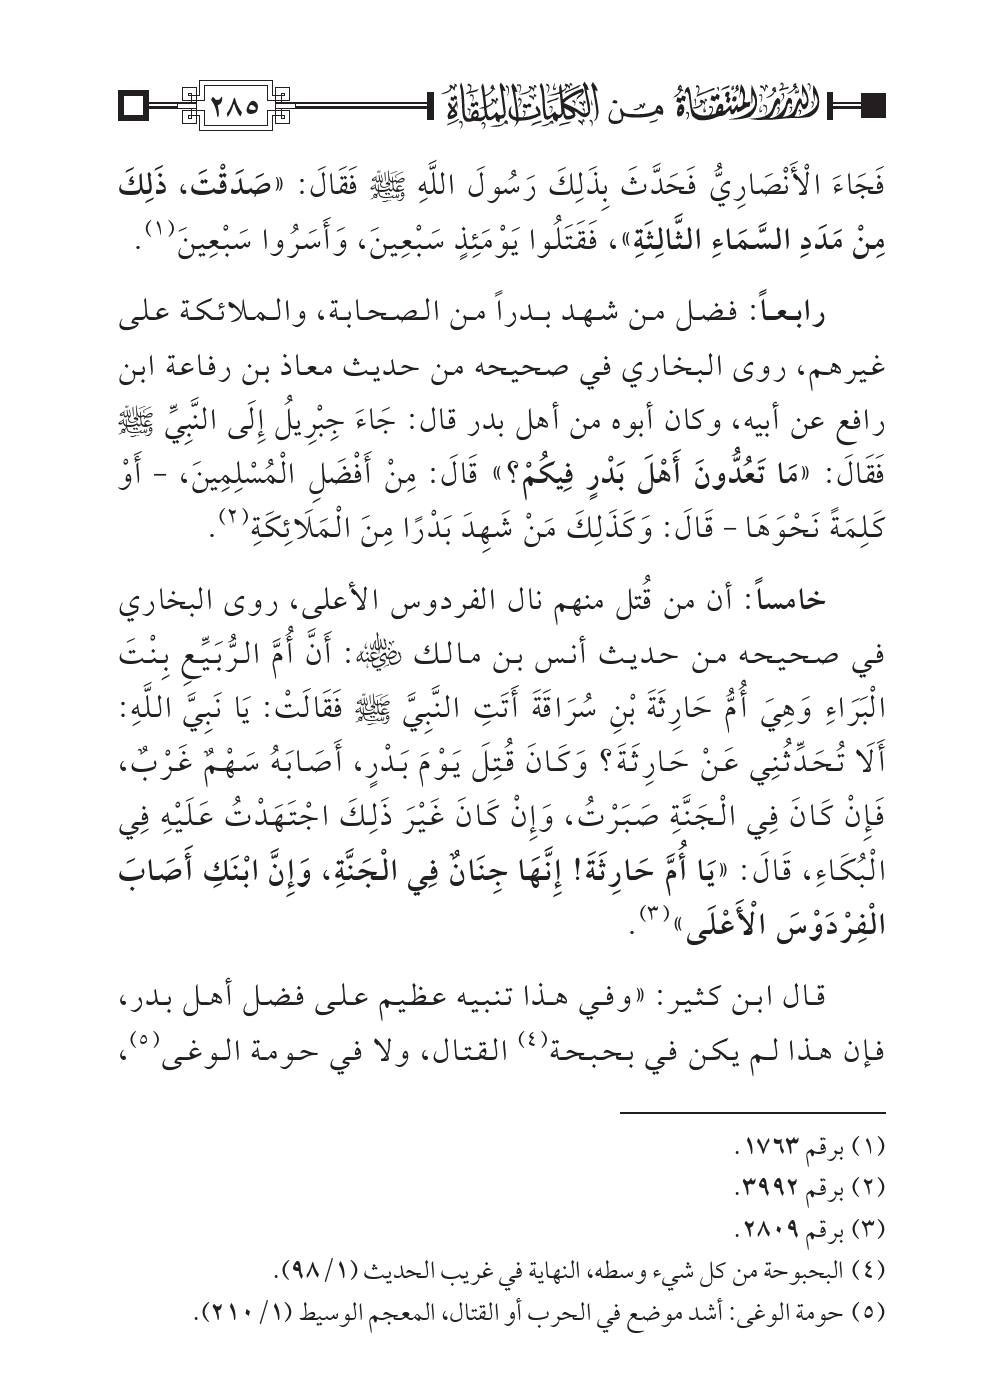 الدُّرَرُ المُنْتَقَاةُ مِن الكَلِمَاتِ المُلْقَاةِ
٢٨٥
فَجَاءَ الْأَنْصَارِيُّ فَحَدَّثَ بِذَلِكَ رَسُولَ اللَّهِ ﷺ فَقَالَ: «صَدَقْتَ، ذَلِكَ
مِنْ مَدَدِ السَّمَاءِ الثَّالِثَةِ»، فَقَتَلُوا يَوْمَئِذٍ سَبْعِينَ، وَأَسَرُوا سَبْعِينَ(١).
رابعاً: فضل من شهد بدراً من الصحابة، والملائكة على
غيرهم، روى البخاري في صحيحه من حديث معاذ بن رفاعة ابن
رافع عن أبيه، وكان أبوه من أهل بدر قال: جَاءَ جِبْرِيلُ إِلَى النَّبِيِّ ﷺ
فَقَالَ: «مَا تَعُدُّونَ أَهْلَ بَدْرٍ فِيكُمْ؟» قَالَ: مِنْ أَفْضَلِ الْمُسْلِمِينَ، – أَوْ
كَلِمَةً نَحْوَهَا – قَالَ: وَكَذَلِكَ مَنْ شَهِدَ بَدْرًا مِنَ الْمَلَائِكَةِ(٢).
خامساً: أن من قُتل منهم نال الفردوس الأعلى، روى البخاري
في صحيحه من حديث أنس بن مالك رضي الله عنه: أَنَّ أُمَّ الرُّبَيِّعِ بِنْتَ
الْبَرَاءِ وَهِيَ أُمُّ حَارِثَةَ بْنِ سُرَاقَةَ أَتَتِ النَّبِيَّ ﷺ فَقَالَتْ: يَا نَبِيَّ اللَّهِ:
أَلَا تُحَدِّثُنِي عَنْ حَارِثَةَ؟ وَكَانَ قُتِلَ يَوْمَ بَدْرٍ، أَصَابَهُ سَهْمٌ غَرْبٌ،
فَإِنْ كَانَ فِي الْجَنَّةِ صَبَرْتُ، وَإِنْ كَانَ غَيْرَ ذَلِكَ اجْتَهَدْتُ عَلَيْهِ فِي
الْبُكَاءِ، قَالَ: «يَا أُمَّ حَارِثَةَ! إِنَّهَا جِنَانٌ فِي الْجَنَّةِ، وَإِنَّ ابْنَكِ أَصَابَ
الْفِرْدَوْسَ الْأَعْلَى»(٣).
قال ابن كثير: «وفي هذا تنبيه عظيم على فضل أهل بدر،
فإن هذا لم يكن في بحبحة(٤) القتال، ولا في حومة الوغى(٥)،
(١) برقم ١٧٦٣.
(٢) برقم ٣٩٩٢.
(٣) برقم ٢٨٠٩.
(٤) البحبوحة من كل شيء وسطه، النهاية في غريب الحديث (١/ ٩٨).
(٥) حومة الوغى: أشد موضع في الحرب أو القتال، المعجم الوسيط (١/ ٢١٠).